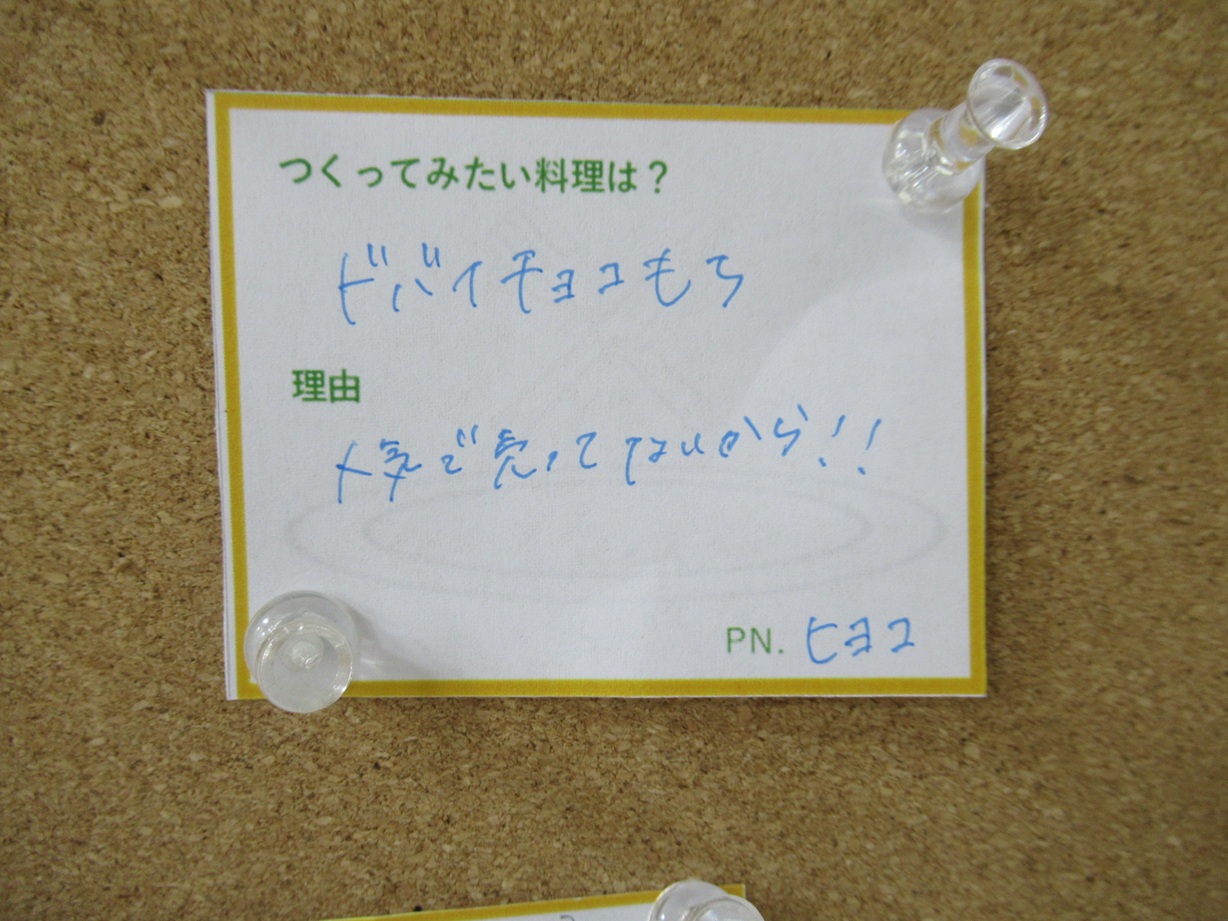 つくってみたい料理は?
ドバイチョコもち
理由
人気で売ってないから!!
PN. ヒヨコ